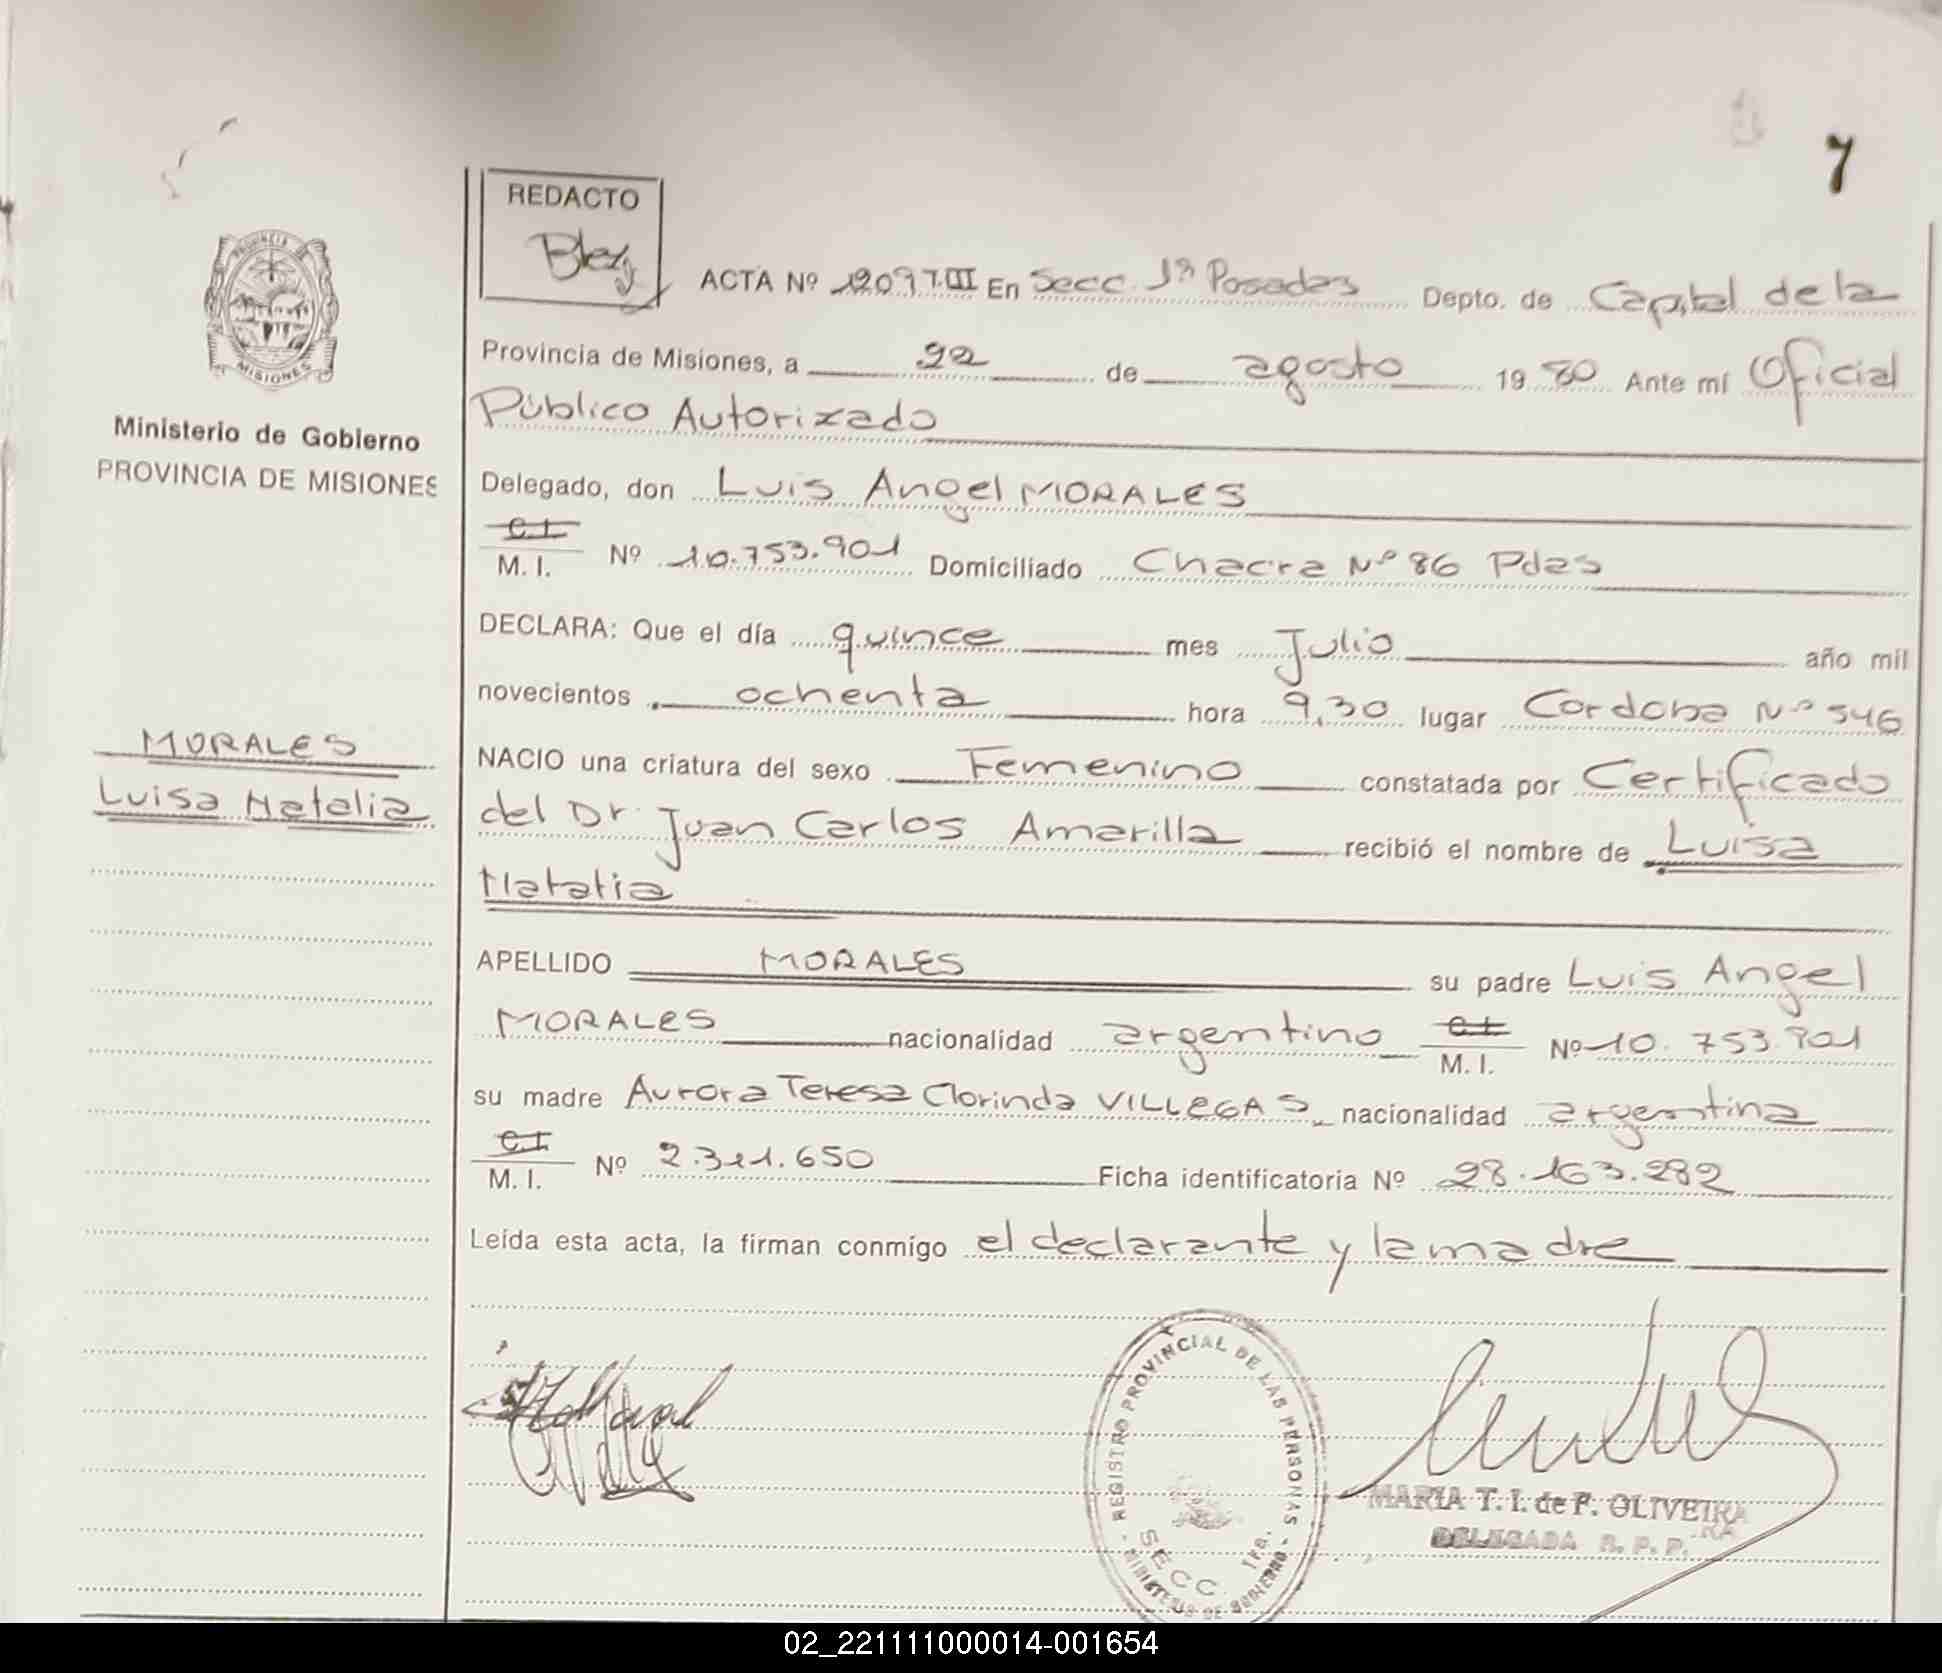 7
REDACTO
Blezy
ACTA Nº 12097.III En Secc. 1ª Posadas Depto. de Capital de la
Provincia de Misiones, a 22 de agosto 1980 Ante mí Oficial
Público Autorizado
Delegado, don Luis Angel MORALES
C.I.
M. I. Nº 10.753.901 Domiciliado Chacra Nº 86 Pdas
DECLARA: Que el día quince mes Julio año mil
novecientos ochenta hora 9,30 lugar Cordoba Nº 546
NACIO una criatura del sexo Femenino constatada por Certificado
del Dr. Juan Carlos Amarilla recibió el nombre de Luisa
Natalia
APELLIDO MORALES su padre Luis Angel
MORALES nacionalidad argentino C.I. M. I. Nº 10.753.901
su madre Aurora Teresa Clorinda VILLEGAS nacionalidad argentina
C.I.
M. I. Nº 2.311.650 Ficha identificatoria Nº 28.163.282
Leída esta acta, la firman conmigo el declarante y la madre
PROVINCIA
MISIONES
Ministerio de Gobierno
PROVINCIA DE MISIONES
MORALES
Luisa Natalia
REGISTRO PROVINCIAL DE LAS PERSONAS
SECC. 1ra.
MINISTERIO DE GOBIERNO
MARIA T. I. de F. OLIVEIRA
DELEGADA R. P. P.
02_221111000014-001654